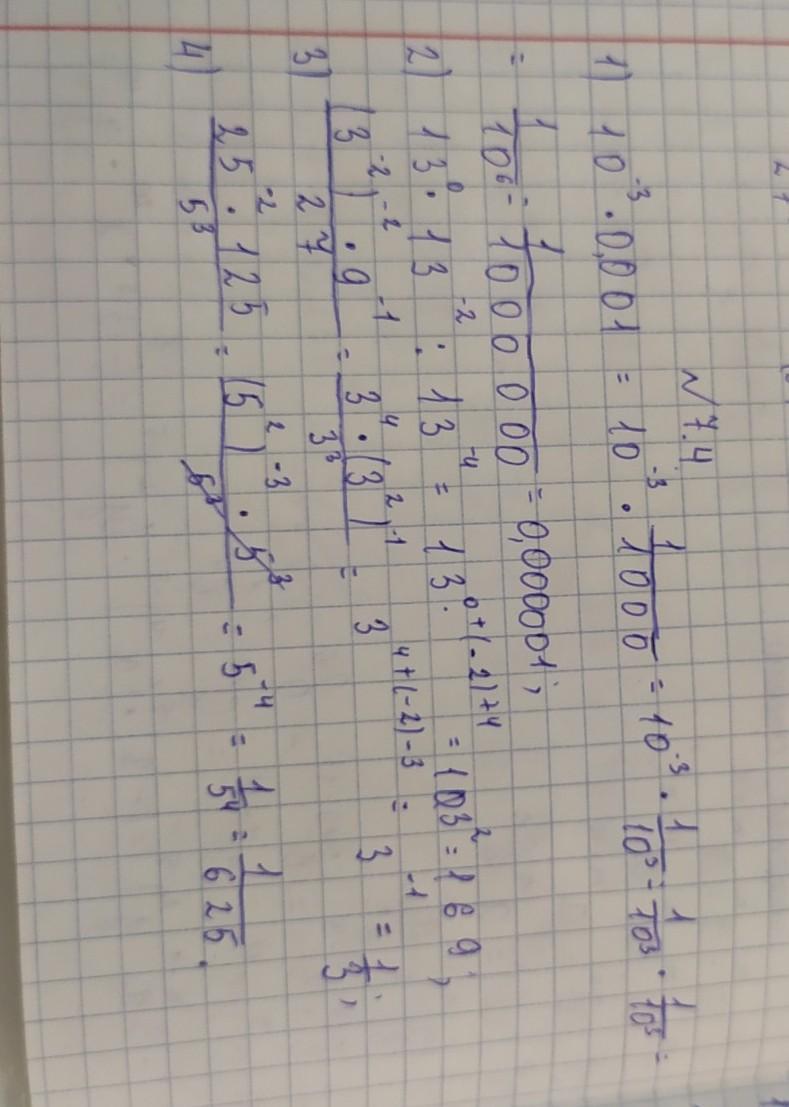 № 7.4
1) 10⁻³ · 0,001 = 10⁻³ · 1/1000 = 10⁻³ · 1/10³ = 1/10³ · 1/10³ =
= 1/10⁶ = 1/1000000 = 0,000001;
2) 13⁰ · 13⁻² : 13⁻⁴ = 13^(0+(-2)+4) = 13² = 169;
3) (3⁻²)⁻² · 9⁻¹ / 27 = 3⁴ · (3²)⁻¹ / 3³ = 3^(4+(-2)-3) = 3⁻¹ = 1/3;
4) 25⁻² · 125 / 5³ = (5²)⁻³ · 5³ / 5³ = 5⁻⁴ = 1/5⁴ = 1/625.